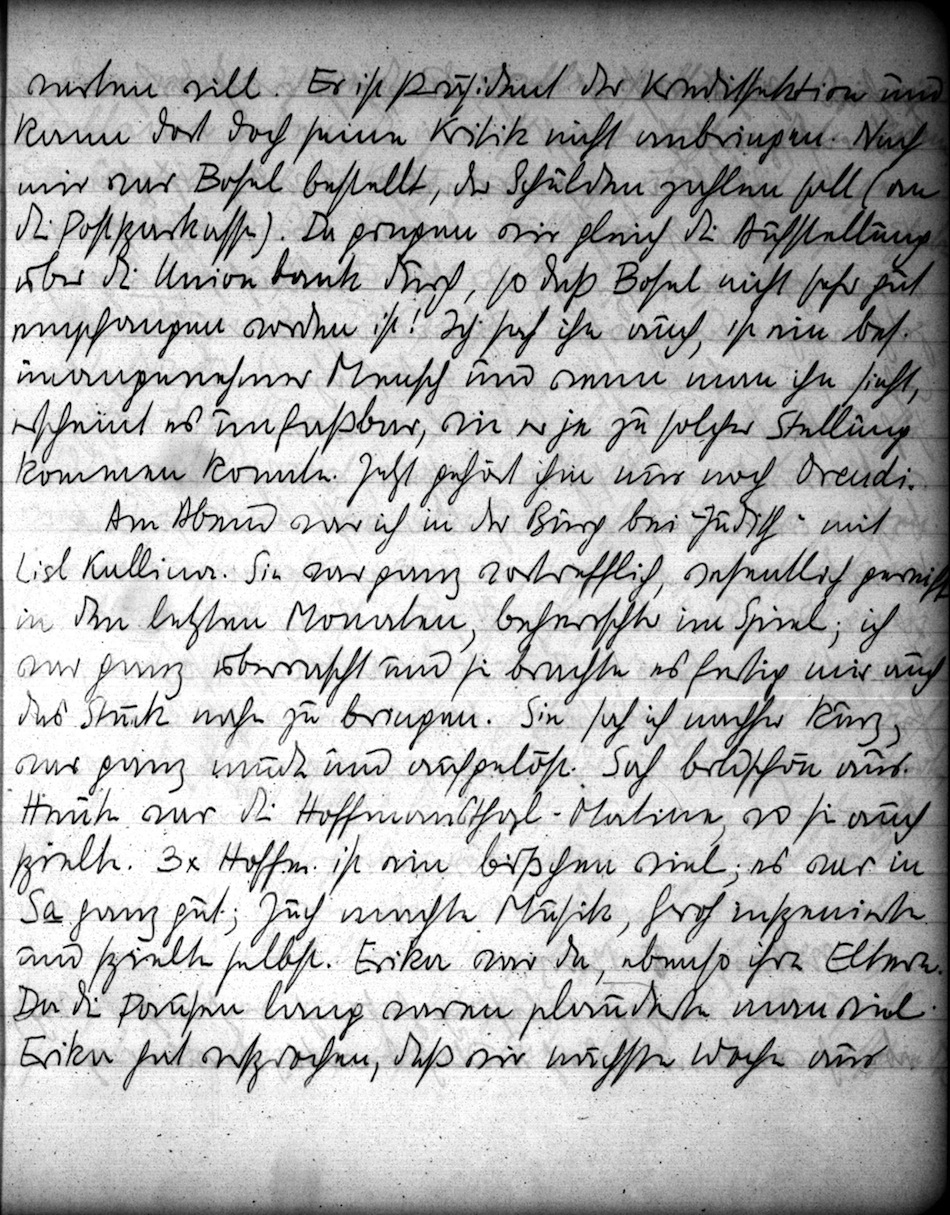 werben will. Er ist Präsident der Kreditsektion und
kann dort doch seine Kritik nicht anbringen. Nach
mir war Bosel bestellt, der Schulden zahlen soll (an
die Postsparkasse). Da gingen wir gleich die Aufstellung
über die Unionbank durch, so daß Bosel nicht sehr gut
empfangen worden ist! Ich sah ihn auch, ist ein bes.
unangenehmer Mensch und wenn man ihn sieht,
erscheint es unfaßbar, wie er je zu solcher Stellung
kommen konnte. Jetzt gehört ihm nur noch Orendi.
Am Abend war ich in der Burg bei "Judith" mit
Lisl Kallina. Sie war ganz vortrefflich, wesentlich gereift
in den letzten Monaten, beherrschte im Spiel; ich
war ganz überrascht und sie brachte es fertig mir auch
das Stück nahe zu bringen. Sie sah ich nachher kurz,
war ganz müde und aufgelöst. Sah bildschön aus.
Heute war die Hoffmansthal-Matinee, wo sie auch
spielte. 3x Hoffm. ist ein bißchen viel; es war in
Sa ganz gut; machte Musik, inszenierte
und spielte selbst. Erika war da, ebenso ihre Eltern.
Da die Pausen lang waren plauderte man viel.
Erika hat versprochen, daß wir nächste Woche aus